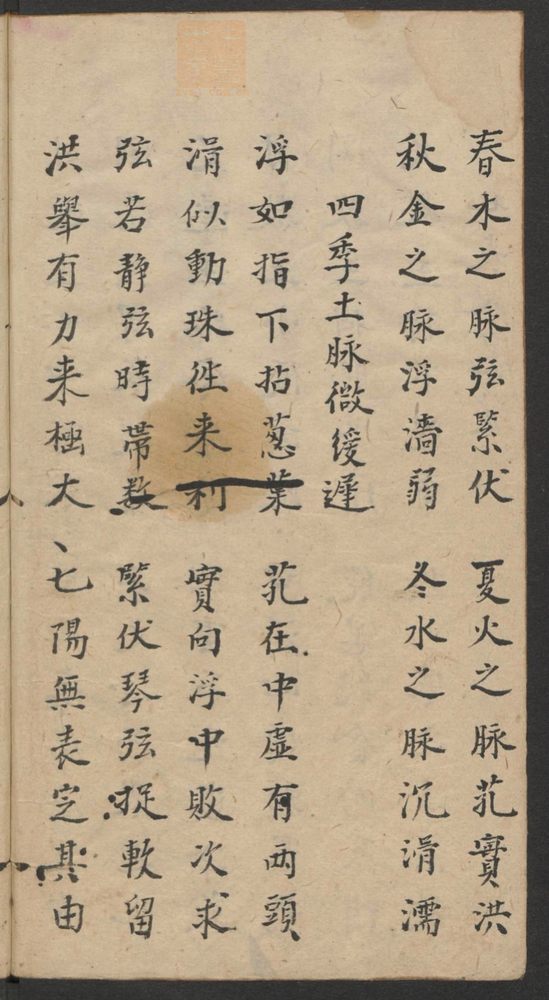 春木之脉弦緊伏 夏火之脉芤實洪
秋金之脉浮濇弱 冬水之脉沉滑濡
四季土脉微緩遲
浮如指下拈葱葉 芤在中虛有两頭
滑似動珠徃来利 實向浮中敗次求
弦若静弦時帶数 緊伏琴弦捉軟留
洪舉有力来極大 七陽無表定其由